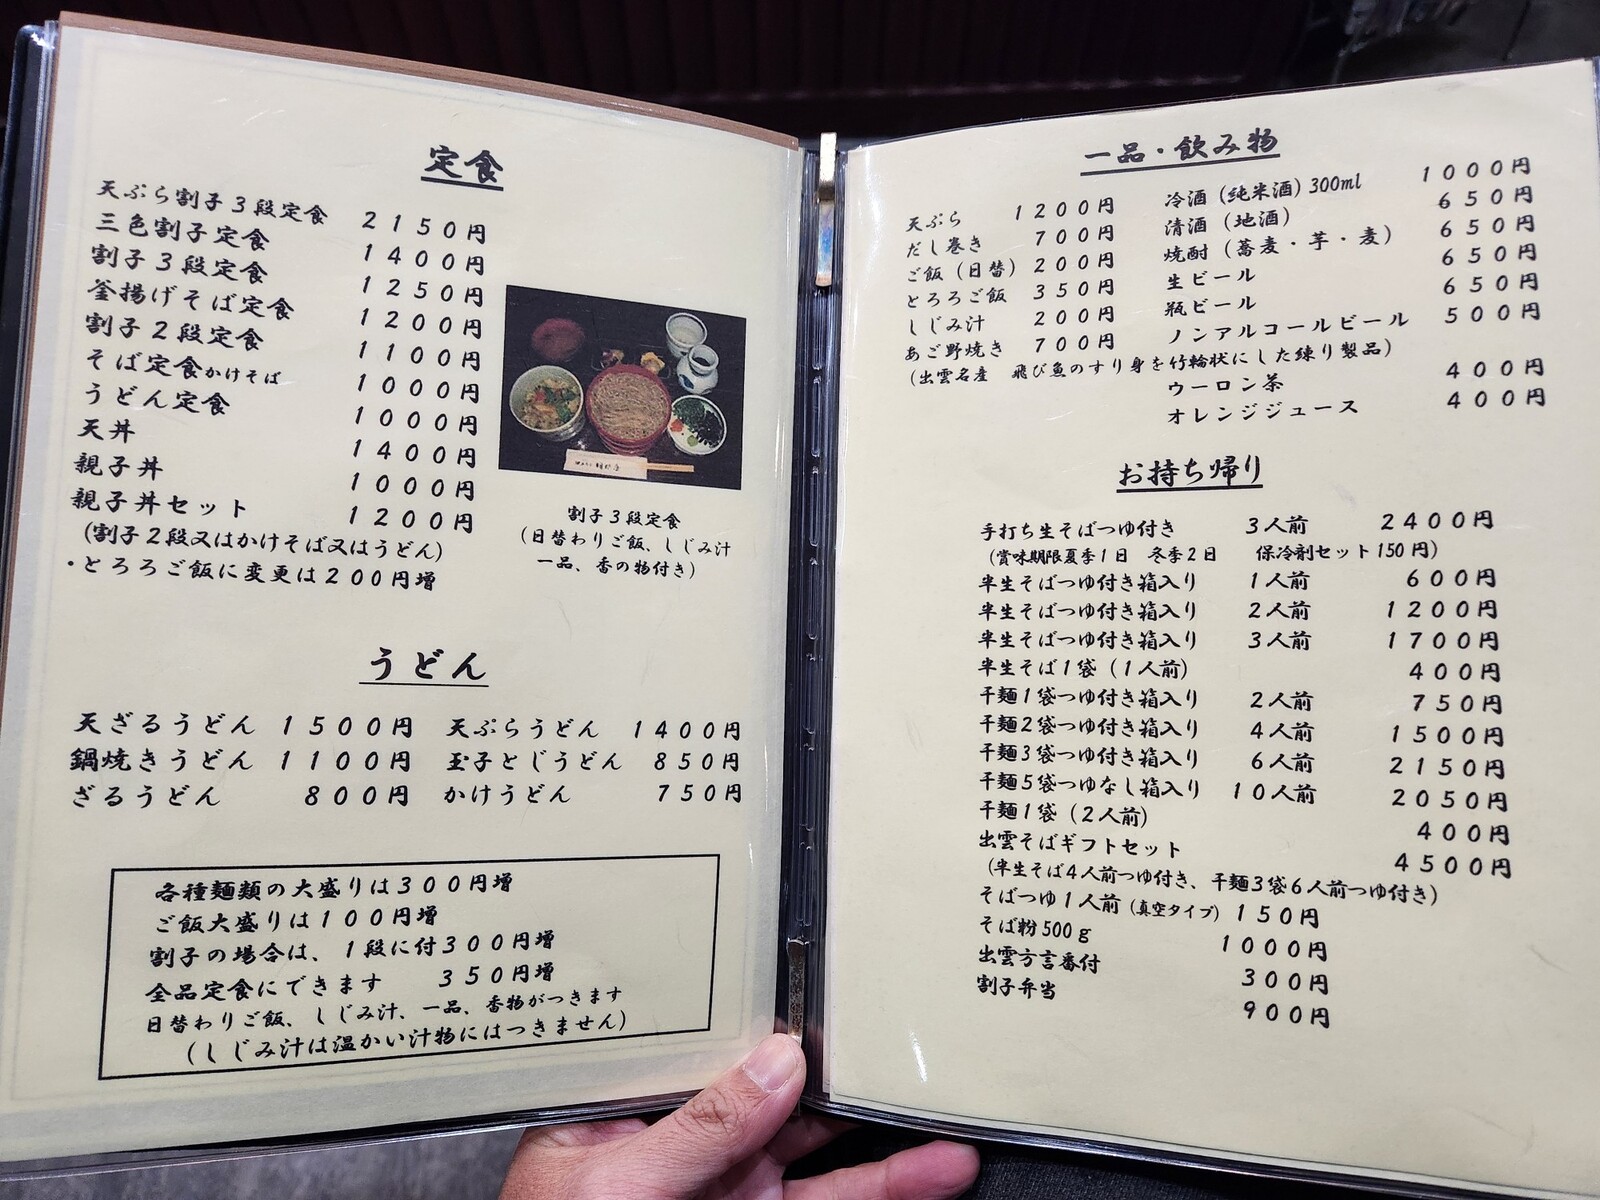 定食
天ぷら割子3段定食 2150円
三色割子定食 1400円
割子3段定食 1250円
釜揚げそば定食 1200円
割子2段定食 1100円
そば定食かけそば 1000円
うどん定食 1000円
天丼 1400円
親子丼 1000円
親子丼セット 1200円
(割子2段又はかけそば又はうどん)
・とろろご飯に変更は200円増
割子3段定食
(日替わりご飯、しじみ汁
一品、香の物付き)
うどん
天ざるうどん 1500円 天ぷらうどん 1400円
鍋焼きうどん 1100円 玉子とじうどん 850円
ざるうどん 800円 かけうどん 750円
各種麺類の大盛りは300円増
ご飯大盛りは100円増
割子の場合は、1段に付300円増
全品定食にできます 350円増
日替わりご飯、しじみ汁、一品、香物がつきます
(しじみ汁は温かい汁物にはつきません)
一品・飲み物
天ぷら 1200円
だし巻き 700円
ご飯(日替) 200円
とろろご飯 350円
しじみ汁 200円
あご野焼き 700円
(出雲名産 飛び魚のすり身を竹輪状にした練り製品)
冷酒(純米酒)300ml 1000円
清酒(地酒) 650円
焼酎(蕎麦・芋・麦) 650円
生ビール 650円
瓶ビール 650円
ノンアルコールビール 500円
ウーロン茶 400円
オレンジジュース 400円
お持ち帰り
手打ち生そばつゆ付き 3人前 2400円
(賞味期限夏季1日 冬季2日 保冷剤セット150円)
半生そばつゆ付き箱入り 1人前 600円
半生そばつゆ付き箱入り 2人前 1200円
半生そばつゆ付き箱入り 3人前 1700円
半生そば1袋(1人前) 400円
干麺1袋つゆ付き箱入り 2人前 750円
干麺2袋つゆ付き箱入り 4人前 1500円
干麺3袋つゆ付き箱入り 6人前 2150円
干麺5袋つゆなし箱入り 10人前 2050円
干麺1袋(2人前) 400円
出雲そばギフトセット 4500円
(半生そば4人前つゆ付き、干麺3袋6人前つゆ付き)
そばつゆ1人前(真空タイプ) 150円
そば粉500g 1000円
出雲方言番付 300円
割子弁当 900円